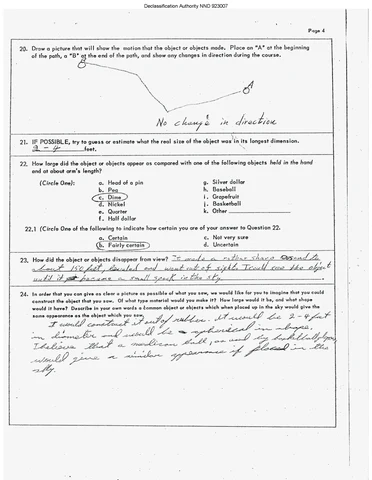 Declassification Authority NND 923007
Page 4
20. Draw a picture that will show the motion that the object or objects made. Place an "A" at the beginning
of the path, a "B" at the end of the path, and show any changes in direction during the course.
B
A
No change in direction
21. IF POSSIBLE, try to guess or estimate what the real size of the object was in its longest dimension.
2 - 4 feet.
22. How large did the object or objects appear as compared with one of the following objects held in the hand
and at about arm's length?
(Circle One): a. Head of a pin g. Silver dollar
b. Pea h. Baseball
c. Dime i. Grapefruit
d. Nickel j. Basketball
e. Quarter k. Other
f. Half dollar
22.1 (Circle One of the following to indicate how certain you are of your answer to Question 22.
a. Certain c. Not very sure
b. Fairly certain d. Uncertain
23. How did the object or objects disappear from view? It made a rather sharp
about 150 feet, and went out of sight. I could see the object
until it became a small speck in the sky.
24. In order that you can give as clear a picture as possible of what you saw, we would like for you to imagine that you could
construct the object that you saw. Of what type material would you make it? How large would it be, and what shape
would it have? Describe in your own words a common object or objects which when placed up in the sky would give the
same appearance as the object which you saw.
I would construct it out of rubber. It would be 2-4 feet
in diameter and would be spherical in shape.
I believe that a medicine ball, as used by basketball players,
would give a similar appearance if placed in the
sky.